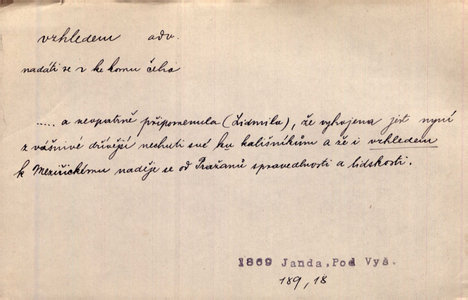 vzhledem adv.
nadáti se v ke komu čeho
..... a neopatrně připomenula (Lidmila), že vyhojena jest nyní
z vášnivé dřívější nechuti své ku kališníkům a že i vzhledem
k Meziříckému naděje se od Pražanů spravedlnosti a lidskosti.
1869 Janda, Pod Vyš.
189, 18